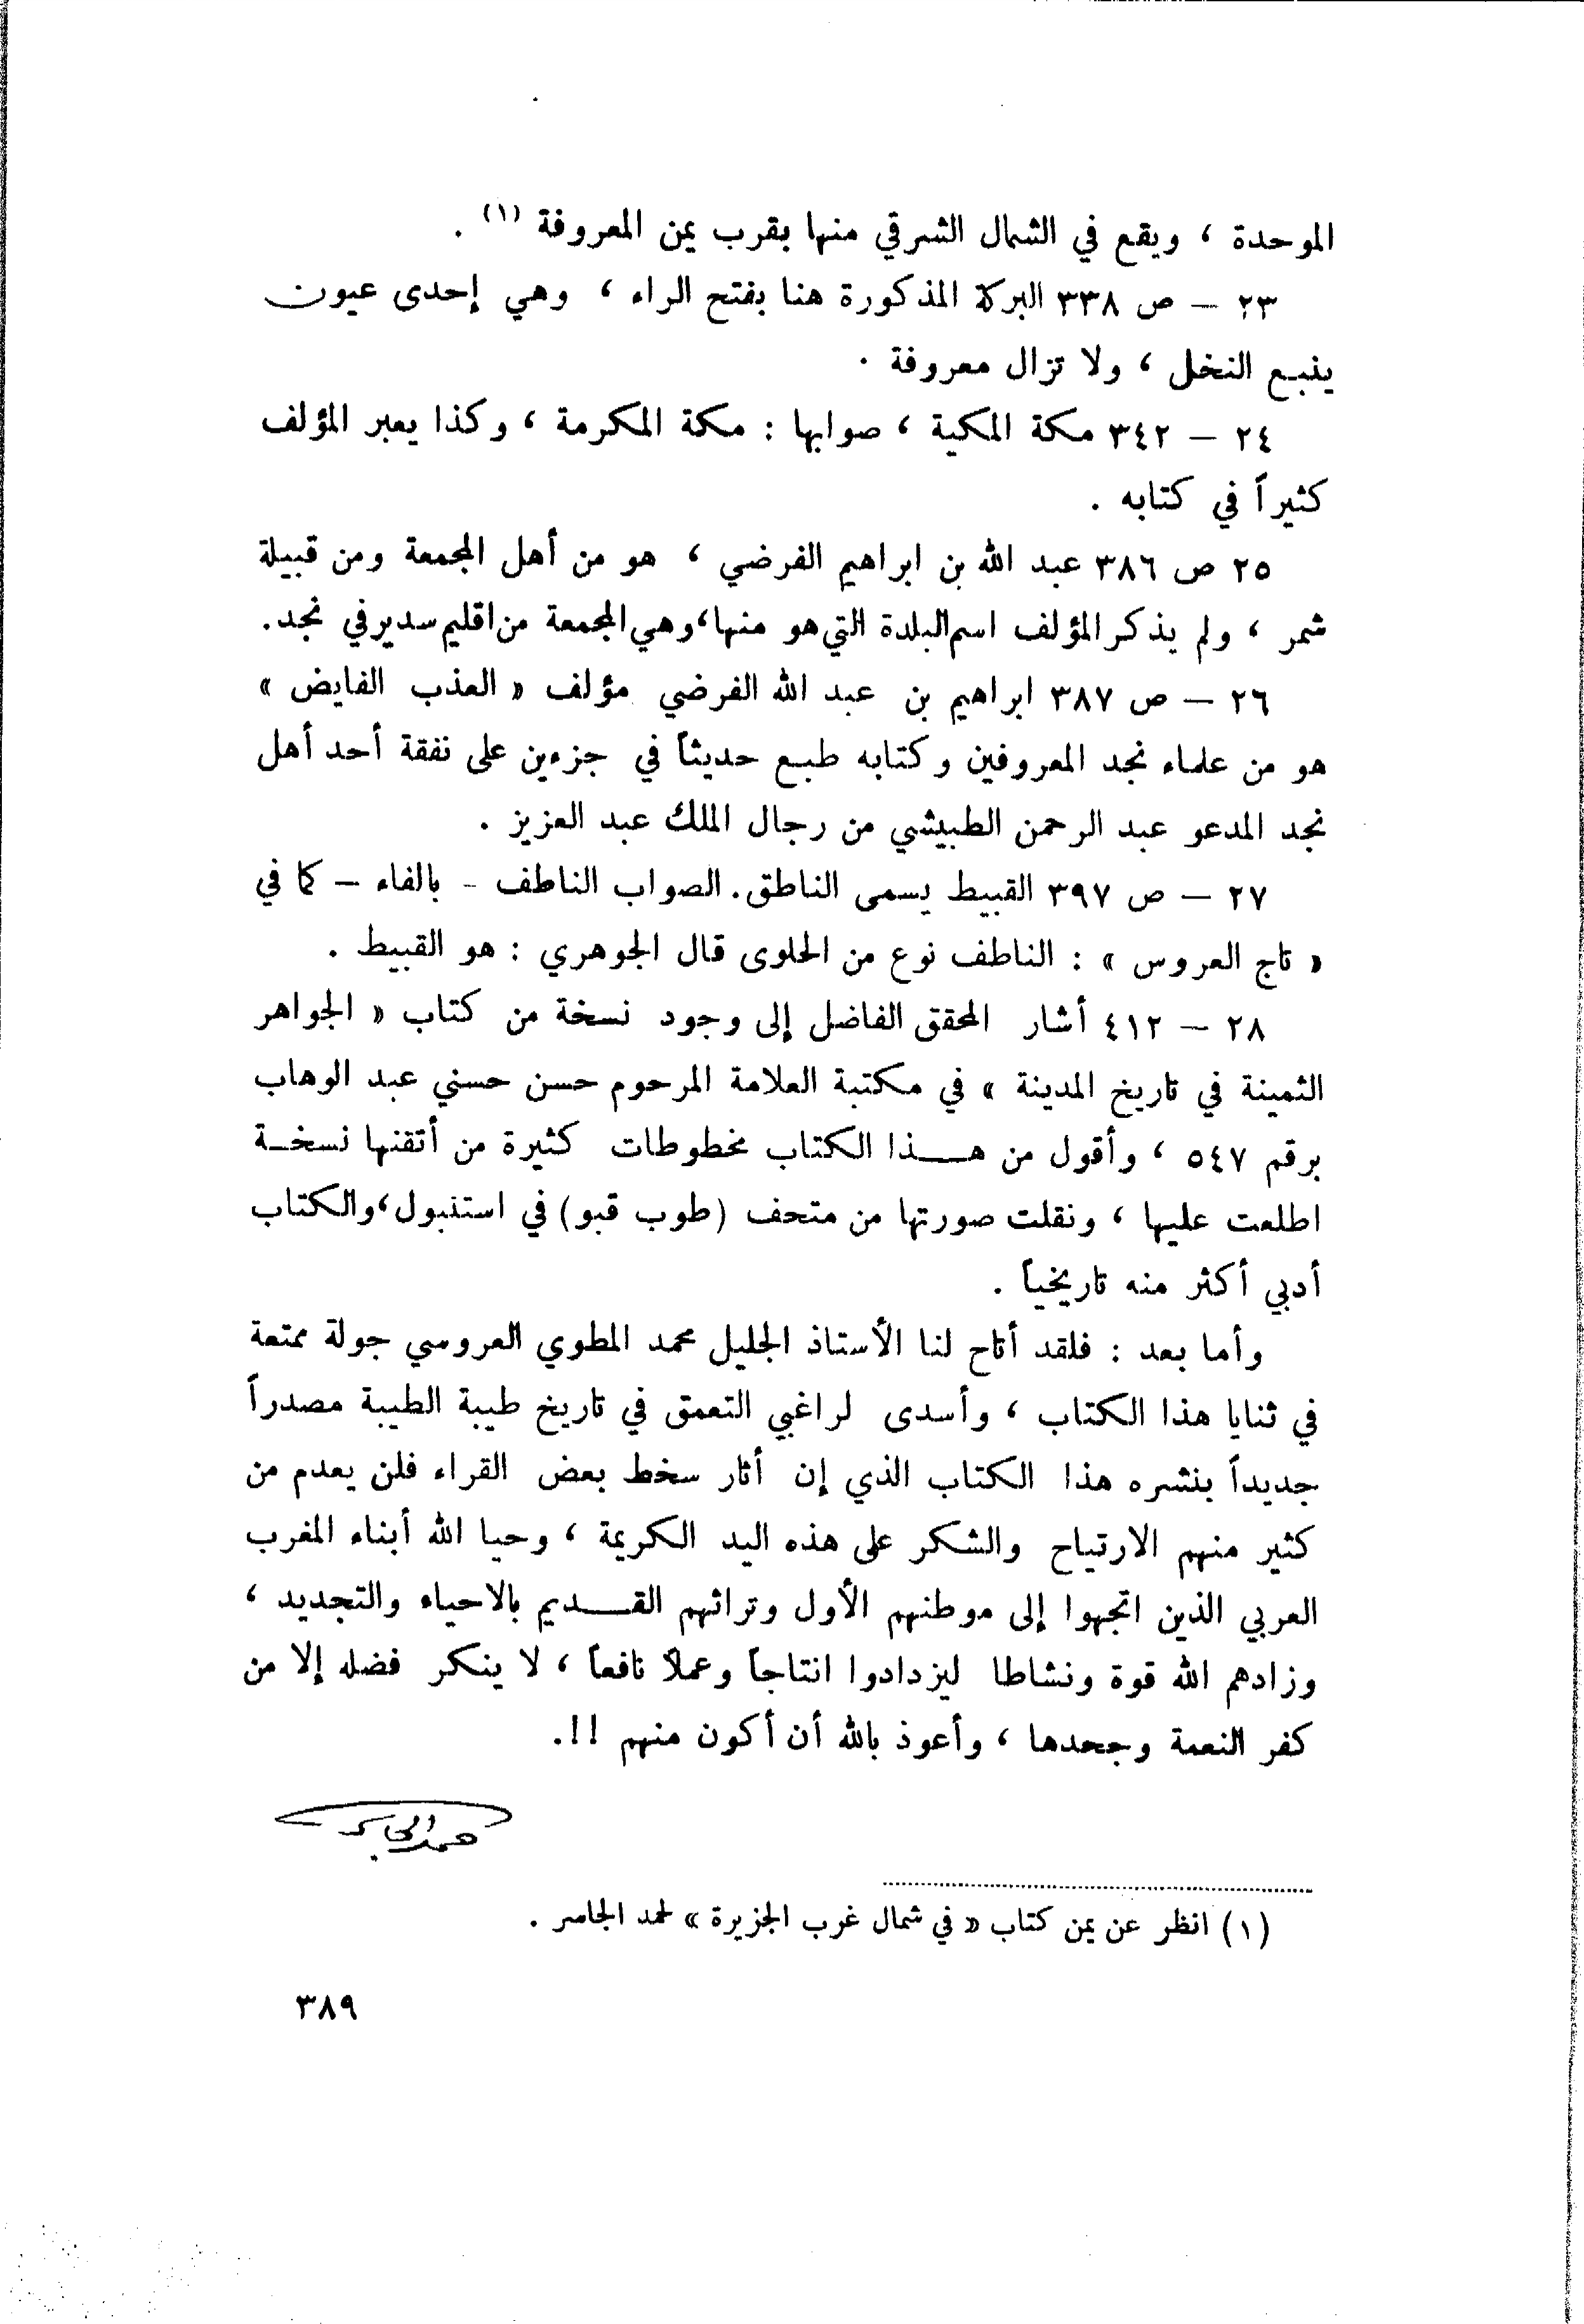 الموحدة ، ويقع في الشمال الشرقي منها بقرب يمن المعروفة (١) .
٢٣ – ص ٣٣٨ البركة المذكورة هنا بفتح الراء ، وهي إحدى عيون
ينبع النخل ، ولا تزال معروفة .
٢٤ – ٣٤٢ مكة المكية ، صوابها : مكة المكرمة ، وكذا يعبر المؤلف
كثيراً في كتابه .
٢٥ ص ٣٨٦ عبد الله بن ابراهيم الفرضي ، هو من أهل المجمعة ومن قبيلة
شمر ، ولم يذكر المؤلف اسم البلدة التي هو منها، وهي المجمعة من اقليم سدير في نجد.
٢٦ – ص ٣٨٧ ابراهيم بن عبد الله الفرضي مؤلف « العذب الفايض »
هو من علماء نجد المعروفين وكتابه طبع حديثاً في جزءين على نفقة أحد أهل
نجد المدعو عبد الرحمن الطبيشي من رجال الملك عبد العزيز .
٢٧ – ص ٣٩٧ القبيط يسمى الناطق. الصواب الناطف - بالفاء – كما في
« تاج العروس » : الناطف نوع من الحلوى قال الجوهري : هو القبيط .
٢٨ – ٤١٢ أشار المحقق الفاضل إلى وجود نسخة من كتاب « الجواهر
الثمينة في تاريخ المدينة » في مكتبة العلامة المرحوم حسن حسني عبد الوهاب
برقم ٥٤٧ ، وأقول من هـــذا الكتاب مخطوطات كثيرة من أتقنها نسخـة
اطلعت عليها ، ونقلت صورتها من متحف (طوب قبو) في استنبول، والكتاب
أدبي أكثر منه تاريخياً .
وأما بعد : فلقد أتاح لنا الأستاذ الجليل محمد المطوي العروسي جولة ممتعة
في ثنايا هذا الكتاب ، وأسدى لراغبي التعمق في تاريخ طيبة الطيبة مصدراً
جديداً بنشره هذا الكتاب الذي إن أثار سخط بعض القراء فلن يعدم من
كثير منهم الارتياح والشكر على هذه اليد الكريمة ، وحيا الله أبناء المغرب
العربي الذين اتجهوا إلى موطنهم الأول وتراثهم القـــديم بالاحياء والتجديد ،
وزادهم الله قوة ونشاطا ليزدادوا انتاجاً وعملاً نافعاً ، لا ينكر فضله إلا من
كفر النعمة وجحدها ، وأعوذ بالله أن أكون منهم !!.
حمد الجاسر
(١) انظر عن يمن كتاب « في شمال غرب الجزيرة » لحمد الجاسر .
٣٨٩